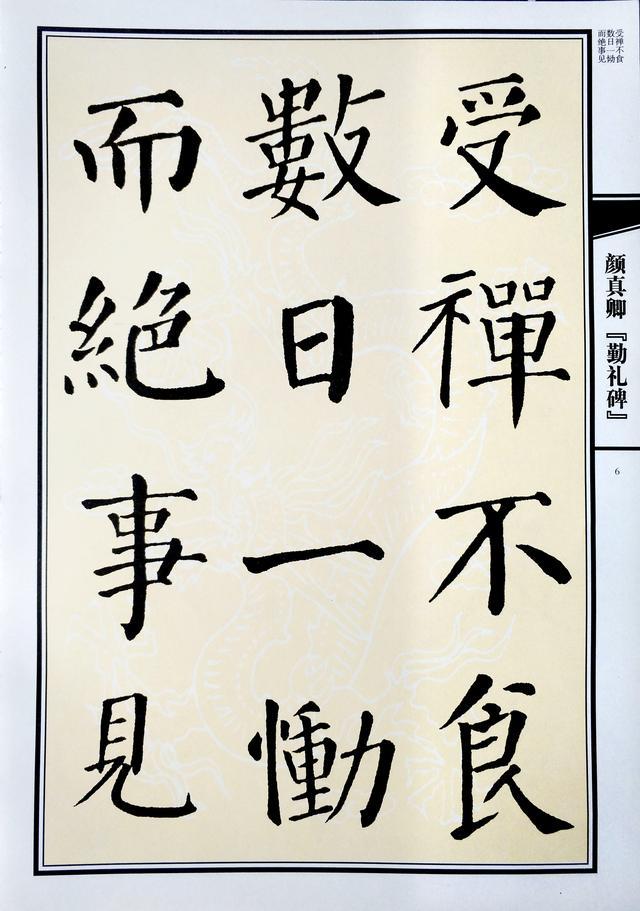 受禪不食
數日一慟
而絕事見
受禅不食
数日一恸
而绝事见
颜真卿『勤礼碑』
6